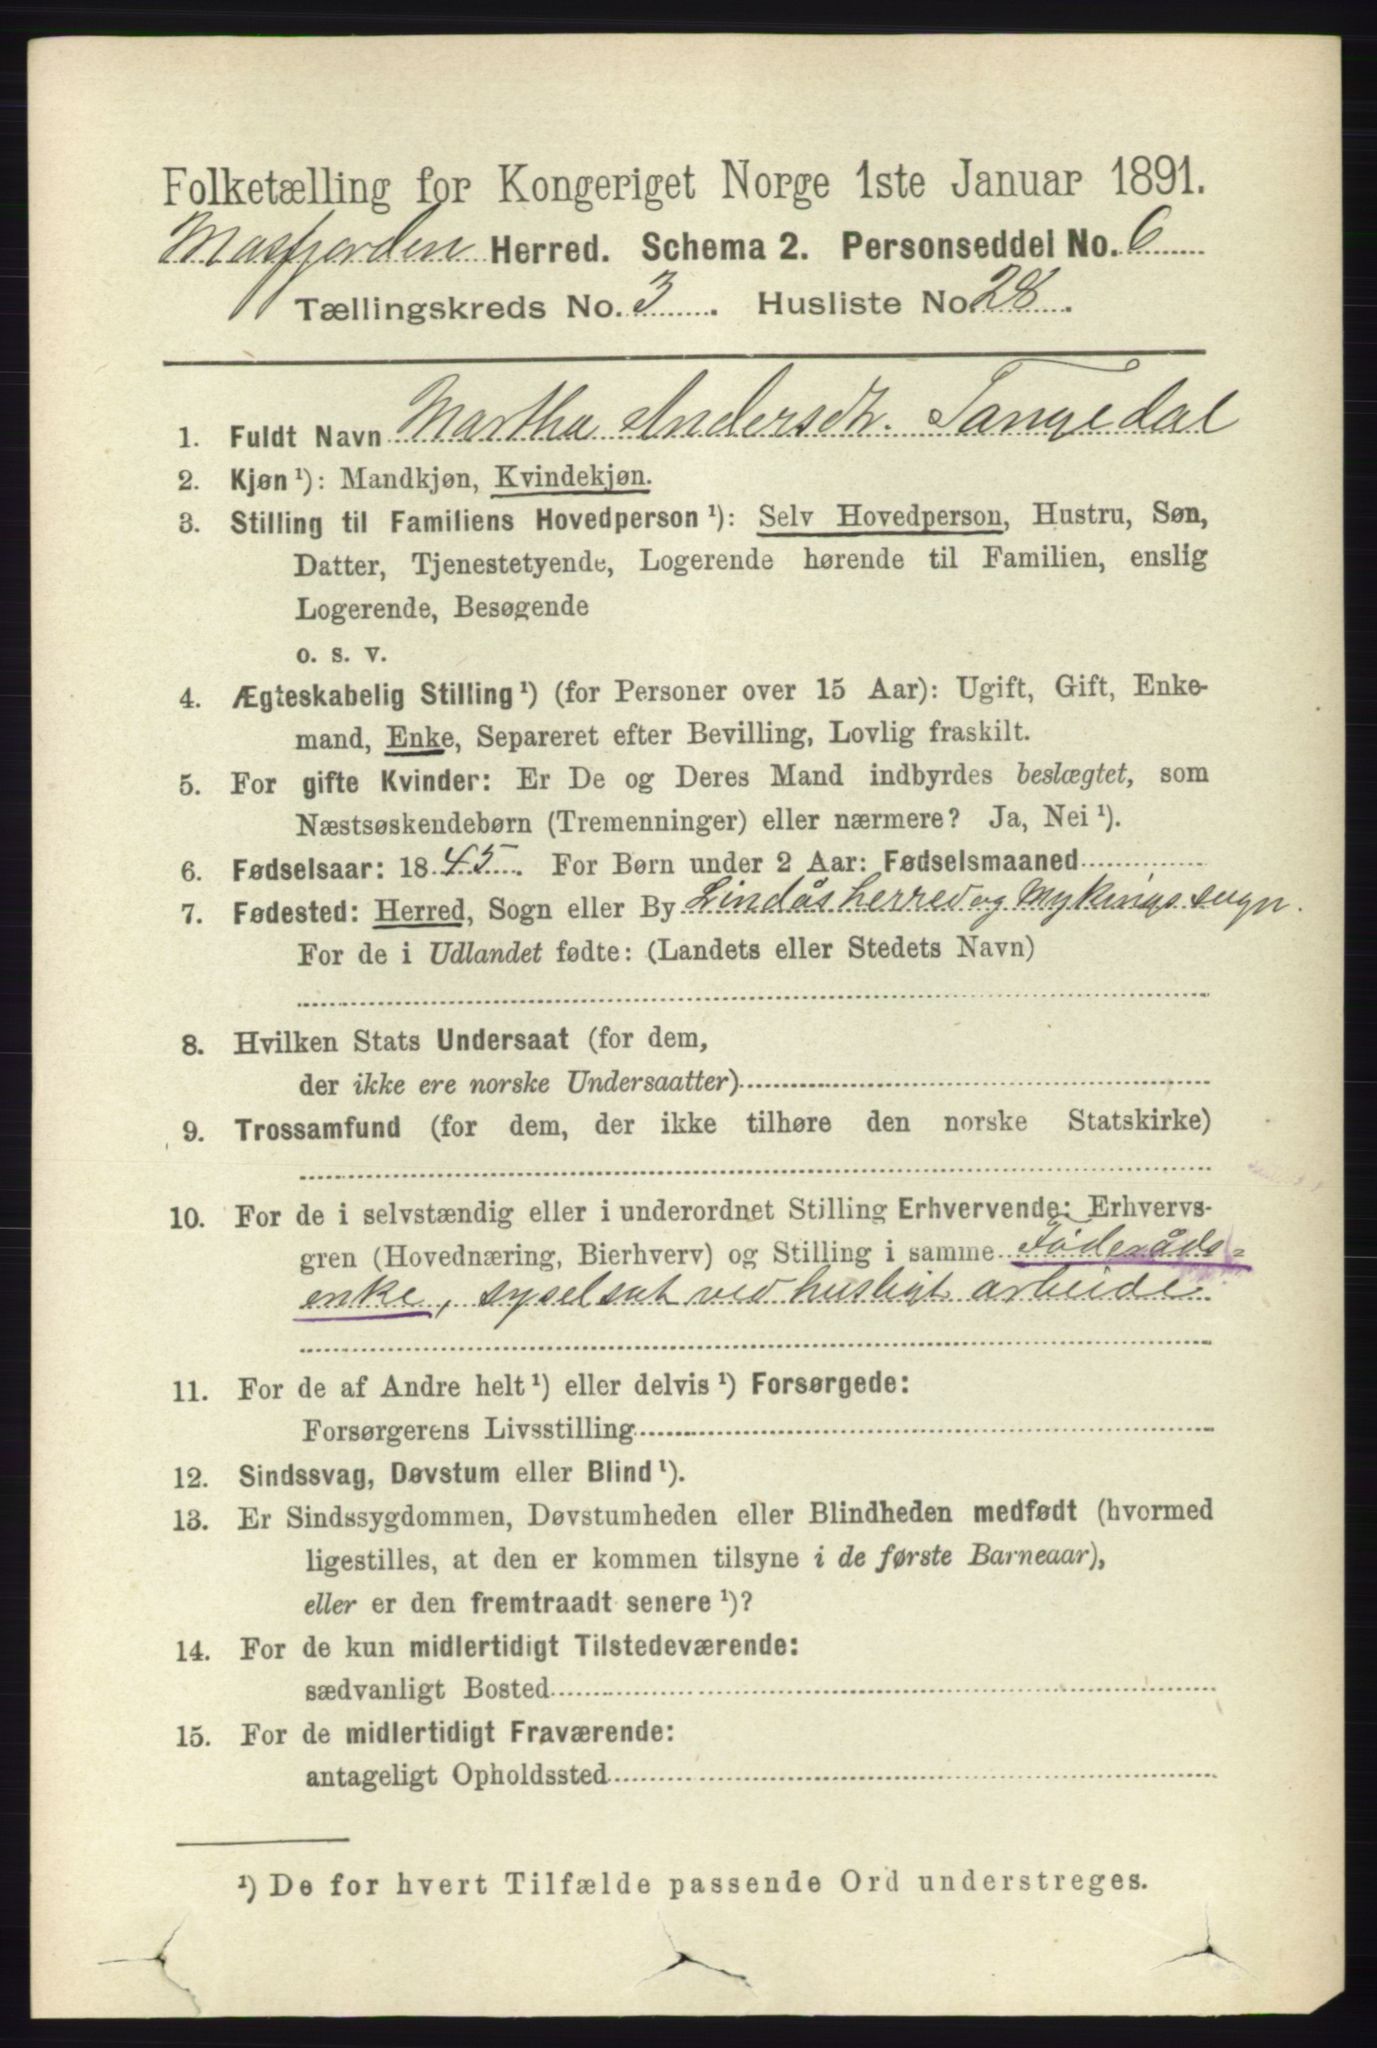 Folketælling for Kongeriget Norge 1ste Januar 1891.
Masfjorden Herred. Schema 2. Personseddel No. 6
Tællingskreds No. 3. Husliste No. 28.
1. Fuldt Navn Martha Andersdtr. Tangedal
2. Kjøn ¹): Mandkjøn, Kvindekjøn.
3. Stilling til Familiens Hovedperson ¹): Selv Hovedperson, Hustru, Søn,
Datter, Tjenestetyende, Logerende hørende til Familien, enslig
Logerende, Besøgende
o. s. v.
4. Ægteskabelig Stilling ¹) (for Personer over 15 Aar): Ugift, Gift, Enke-
mand, Enke, Separeret efter Bevilling, Lovlig fraskilt.
5. For gifte Kvinder: Er De og Deres Mand indbyrdes beslægtet, som
Næstsøskendebørn (Tremenninger) eller nærmere? Ja, Nei ¹).
6. Fødselsaar: 1845. For Børn under 2 Aar: Fødselsmaaned
7. Fødested: Herred, Sogn eller By Lindås herred og Mykings sogn.
For de i Udlandet fødte: (Landets eller Stedets Navn)
8. Hvilken Stats Undersaat (for dem,
der ikke ere norske Undersaatter)
9. Trossamfund (for dem, der ikke tilhøre den norske Statskirke)
10. For de i selvstændig eller i underordnet Stilling Erhvervende: Erhvervs-
gren (Hovednæring, Bierhverv) og Stilling i samme Föderåds=
enke, syselsat ved husligt arbeide.
11. For de af Andre helt ¹) eller delvis ¹) Forsørgede:
Forsørgerens Livsstilling
12. Sindssvag, Døvstum eller Blind ¹).
13. Er Sindssygdommen, Døvstumheden eller Blindheden medfødt (hvormed
ligestilles, at den er kommen tilsyne i de første Barneaar),
eller er den fremtraadt senere ¹)?
14. For de kun midlertidigt Tilstedeværende:
sædvanligt Bosted
15. For de midlertidigt Fraværende:
antageligt Opholdssted
¹) De for hvert Tilfælde passende Ord understreges.